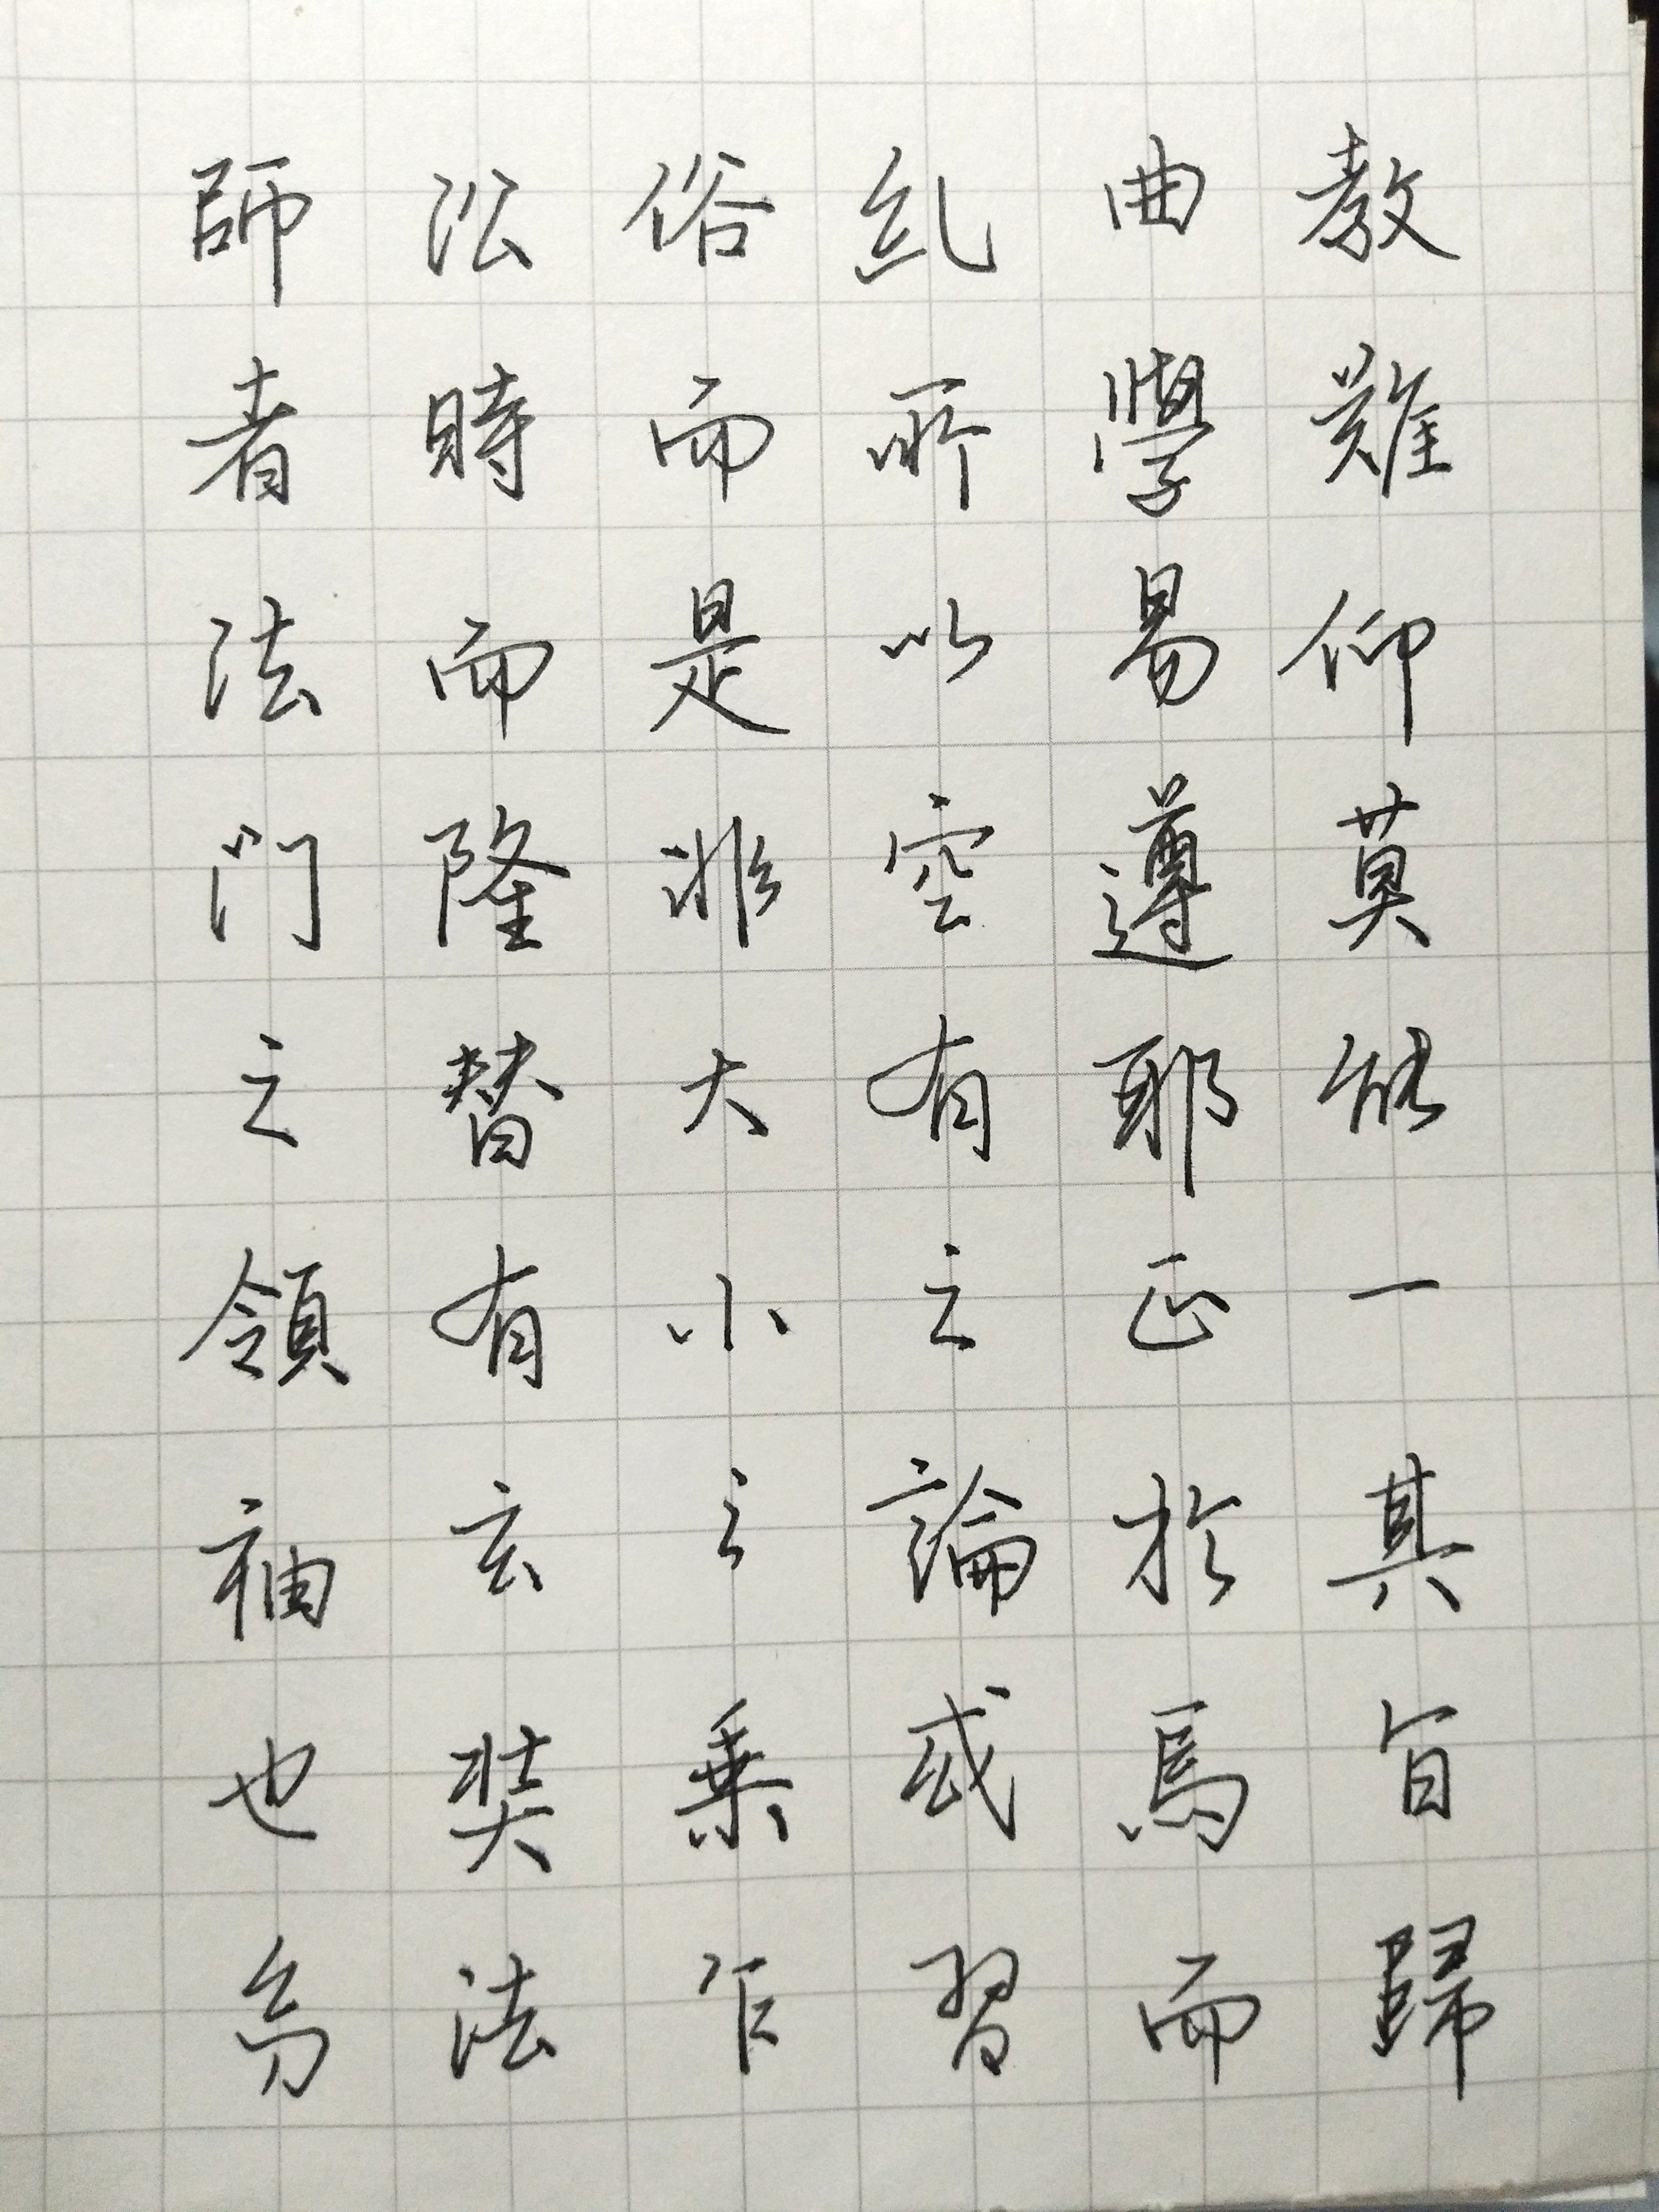 教難仰莫能一其旨歸
曲學易遵耶正於焉而
乱所以空有之論或習
俗而是非大小之乗乍
㳂時而隆替有玄奘法
師者法門之領袖也幼